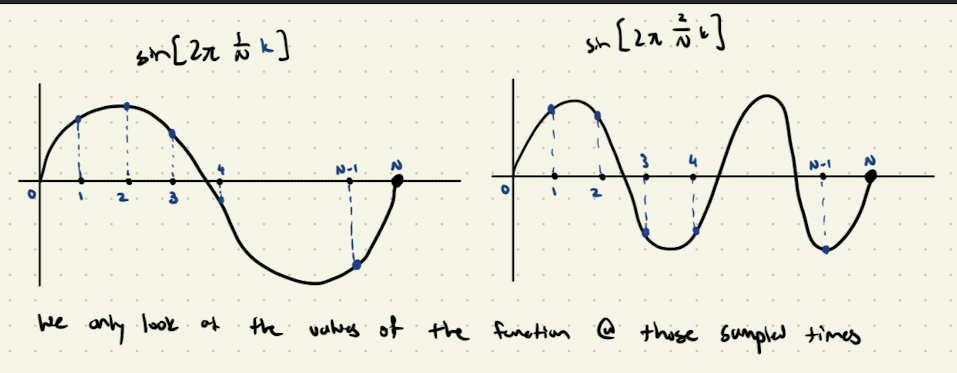 sin[2π 1/N k]
sin[2π 2/N k]
0 1 2 3 4 N-1 N
0 1 2 3 4 N-1 N
We only look at the values of the function @ those sampled times